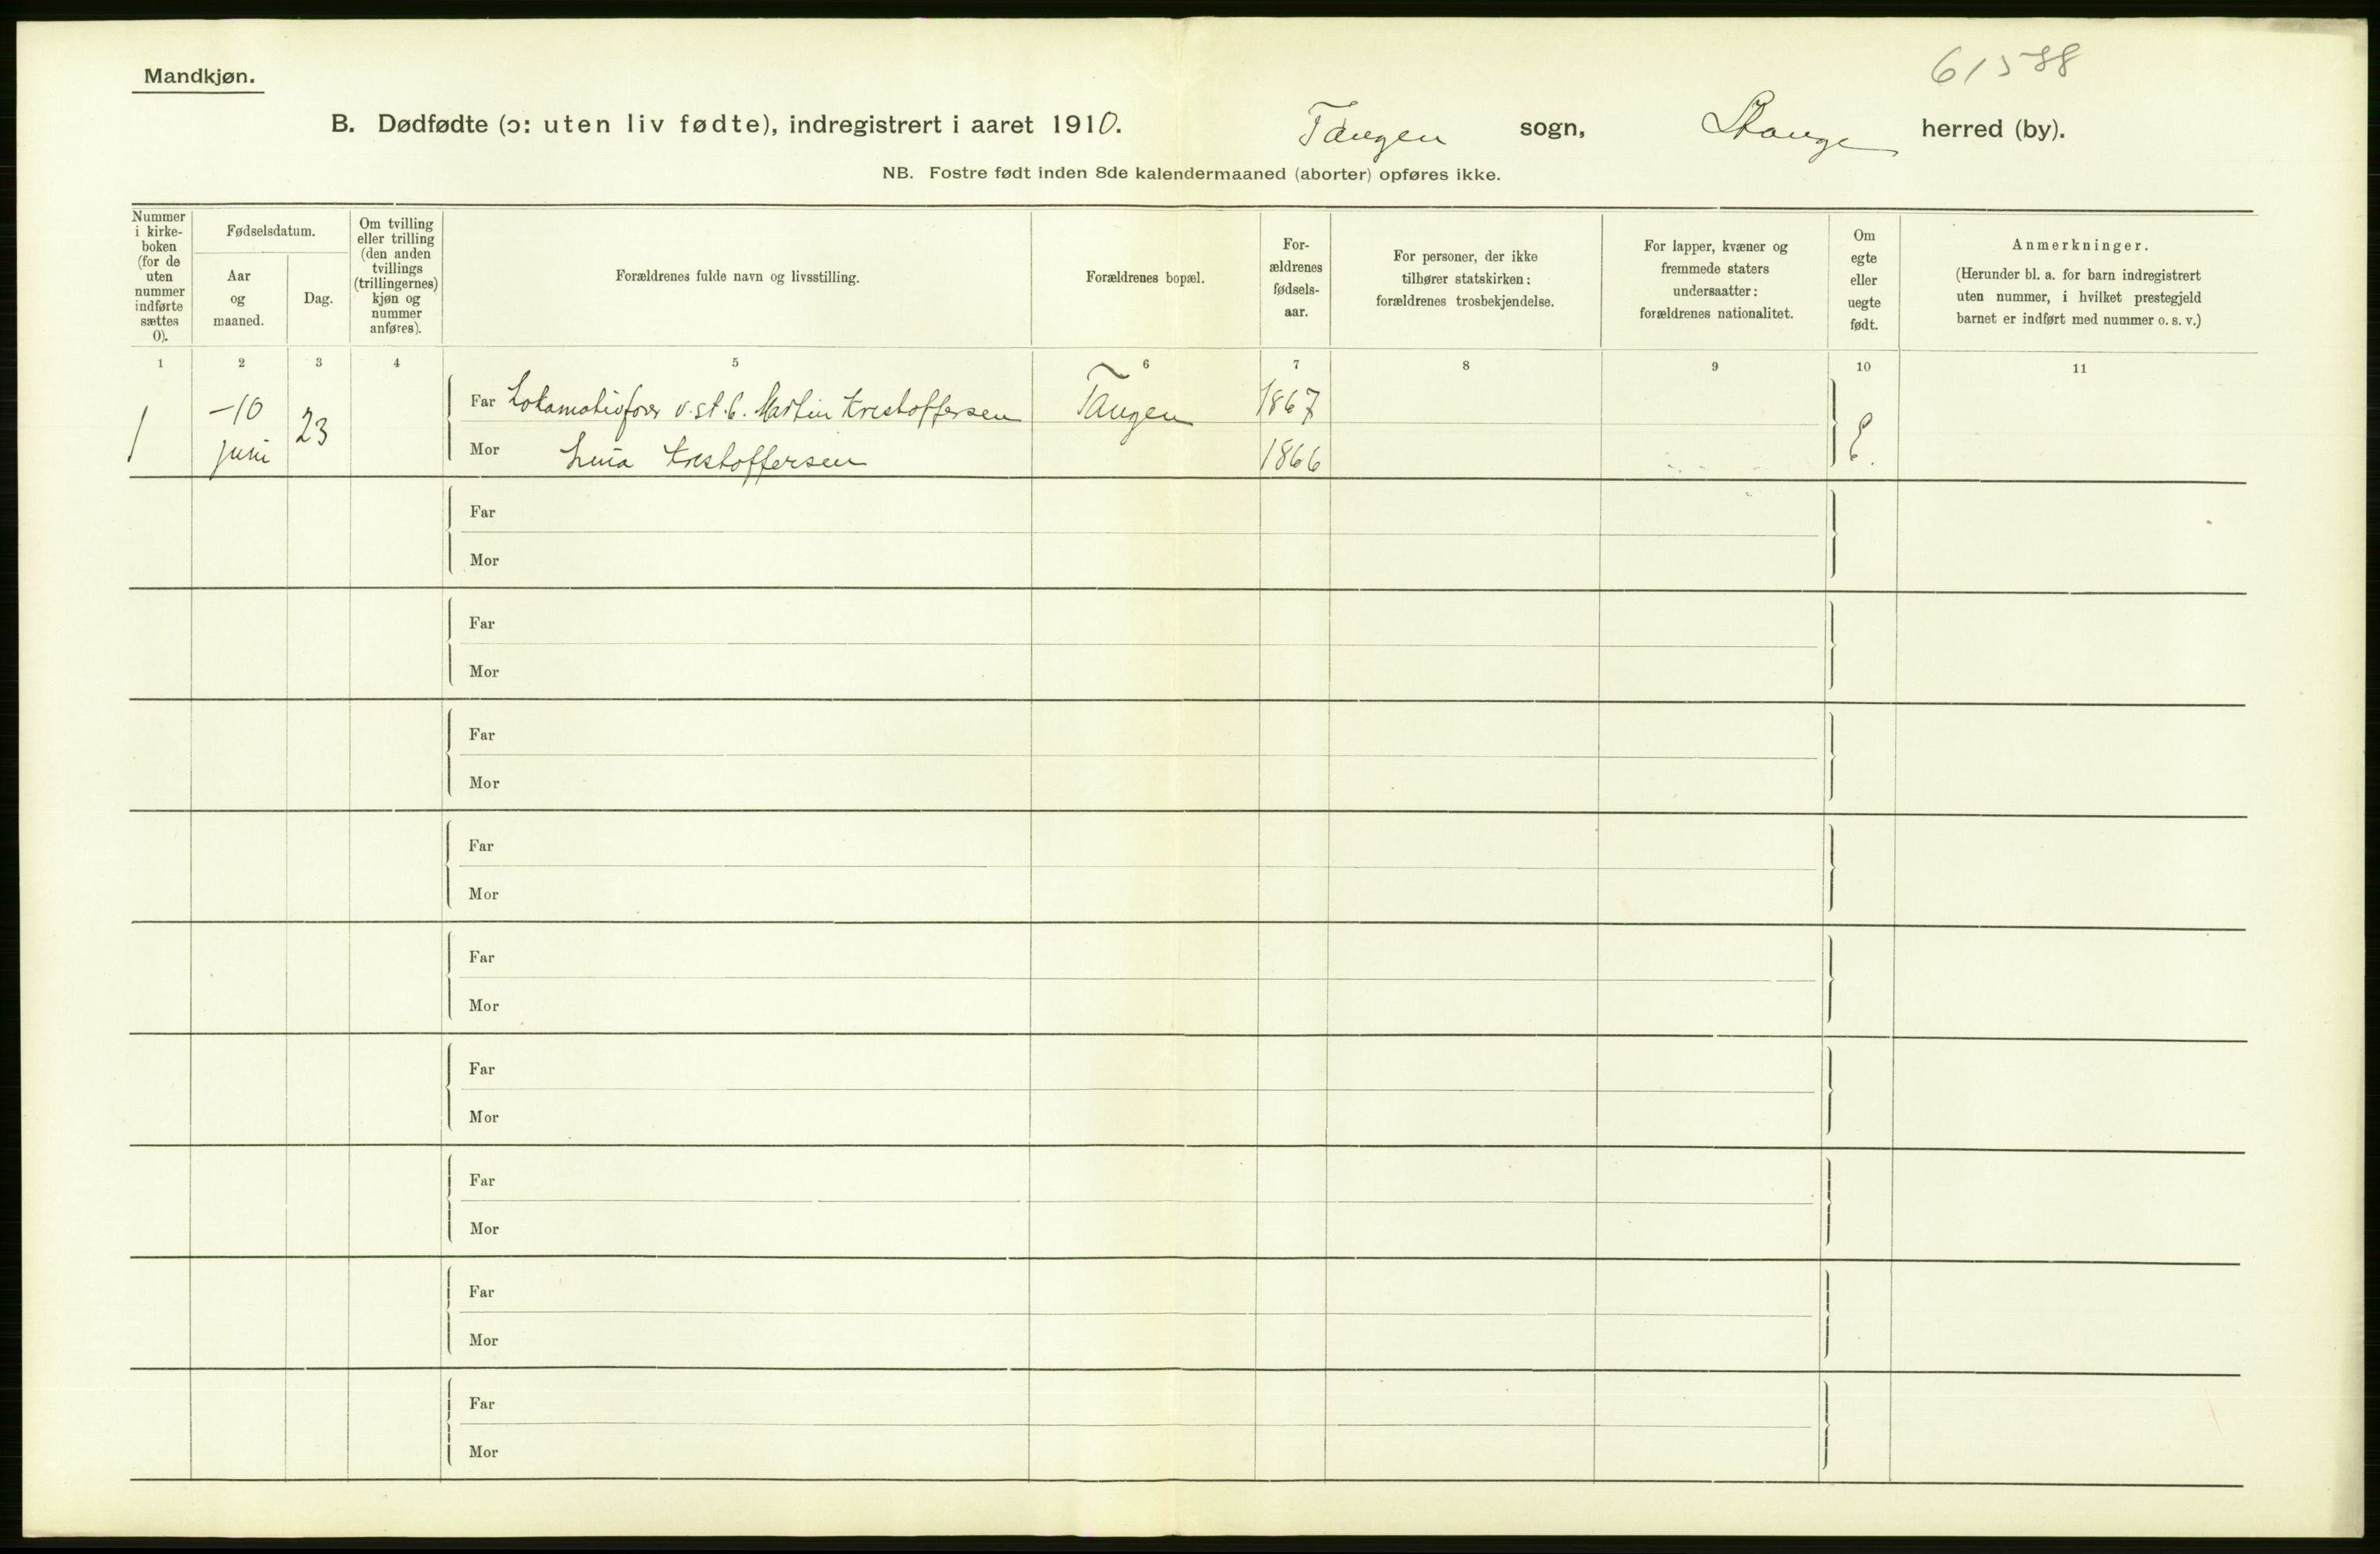 61588
Mandkjøn.
B. Dødfødte (ɔ: uten liv fødte), indregistrert i aaret 1910. Tangen sogn, Stange herred (by).
NB. Fostre født inden 8de kalendermaaned (aborter) opføres ikke.
Nummer
i kirke-
boken
(for de
uten
nummer
indførte
sættes
0).
Fødselsdatum.
Aar
og
maaned.
Dag.
Om tvilling
eller trilling
(den anden
tvillings
(trillingernes)
kjøn og
nummer
anføres).
Forældrenes fulde navn og livsstilling.
Forældrenes bopæl.
For-
ældrenes
fødsels-
aar.
For personer, der ikke
tilhører statskirken:
forældrenes trosbekjendelse.
For lapper, kvæner og
fremmede staters
undersaatter:
forældrenes nationalitet.
Om
egte
eller
uegte
født.
Anmerkninger.
(Herunder bl. a. for barn indregistrert
uten nummer, i hvilket prestegjeld
barnet er indført med nummer o. s. v.)
1 2 3 4 5 6 7 8 9 10 11
1
-10
juni
23
Far Lokomotivfører v. st. b. Martin Kristoffersen Tangen 1867
Mor Lina Kristoffersen 1866
E.
Far
Mor
Far
Mor
Far
Mor
Far
Mor
Far
Mor
Far
Mor
Far
Mor
Far
Mor
Far
Mor